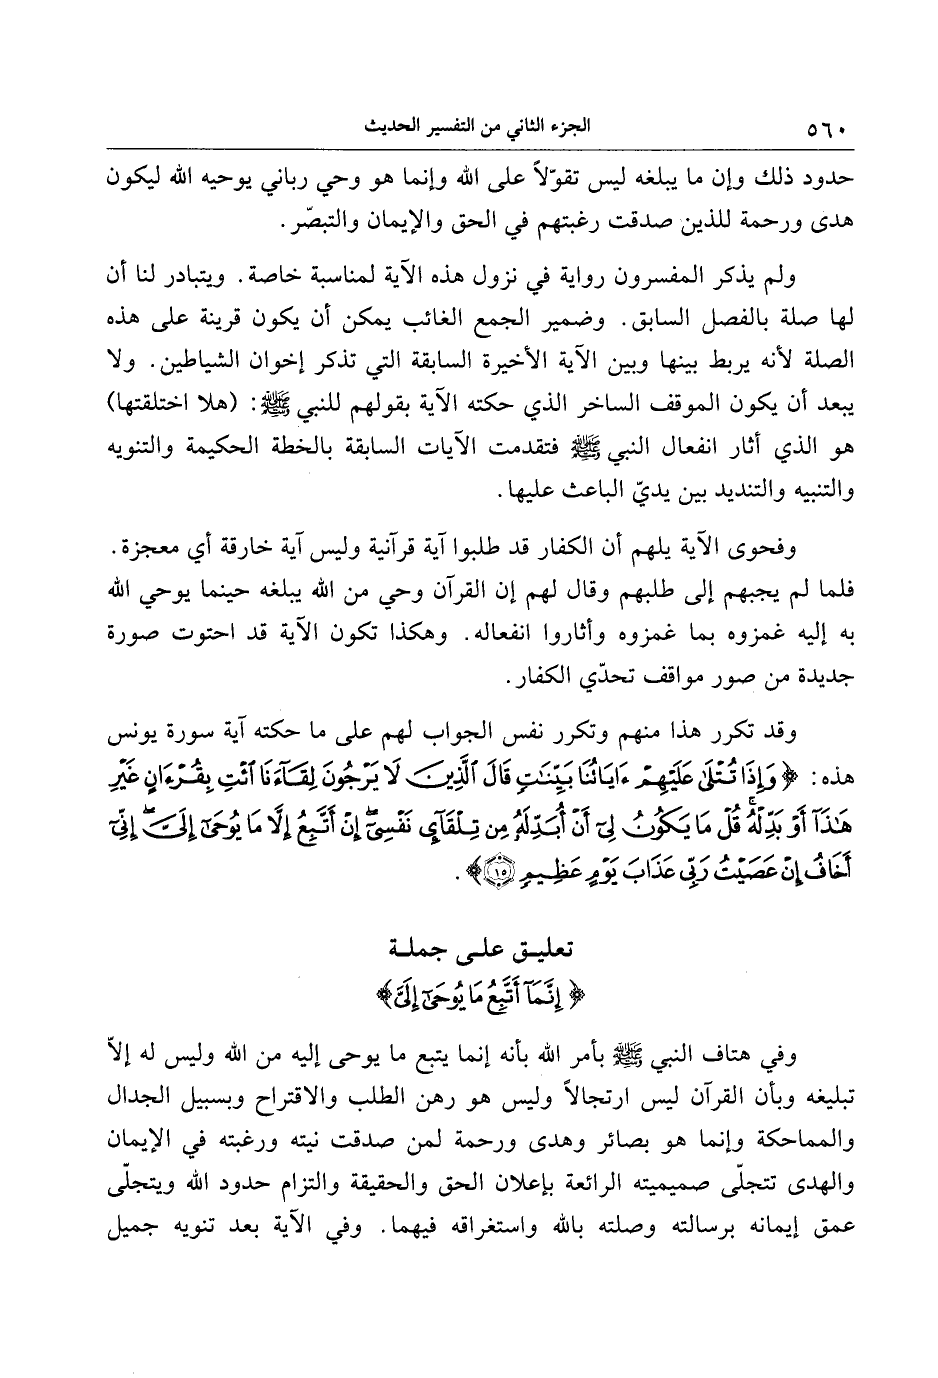 ٥٦٠ الجزء الثاني من التفسير الحديث
حدود ذلك وإن ما يبلغه ليس تقوّلاً على الله وإنما هو وحي رباني يوحيه الله ليكون
هدى ورحمة للذين صدقت رغبتهم في الحق والإيمان والتبصّر.
ولم يذكر المفسرون رواية في نزول هذه الآية لمناسبة خاصة. ويتبادر لنا أن
لها صلة بالفصل السابق. وضمير الجمع الغائب يمكن أن يكون قرينة على هذه
الصلة لأنه يربط بينها وبين الآية الأخيرة السابقة التي تذكر إخوان الشياطين. ولا
يبعد أن يكون الموقف الساخر الذي حكته الآية بقولهم للنبي ﷺ: (هلا اختلقتها)
هو الذي أثار انفعال النبي ﷺ فتقدمت الآيات السابقة بالخطة الحكيمة والتنويه
والتنبيه والتنديد بين يديّ الباعث عليها.
وفحوى الآية يلهم أن الكفار قد طلبوا آية قرآنية وليس آية خارقة أي معجزة.
فلما لم يجبهم إلى طلبهم وقال لهم إن القرآن وحي من الله يبلغه حينما يوحي الله
به إليه غمزوه بما غمزوه وأثاروا انفعاله. وهكذا تكون الآية قد احتوت صورة
جديدة من صور مواقف تحدّي الكفار.
وقد تكرر هذا منهم وتكرر نفس الجواب لهم على ما حكته آية سورة يونس
هذه: ﴿وَإِذَا تُتْلَىٰ عَلَيْهِمْ ءَايَاتُنَا بَيِّنَٰتٍ قَالَ ٱلَّذِينَ لَا يَرْجُونَ لِقَآءَنَا ٱئْتِ بِقُرْءَانٍ غَيْرِ
هَٰذَآ أَوْ بَدِّلْهُ ۚ قُلْ مَا يَكُونُ لِىٓ أَنْ أُبَدِّلَهُۥ مِن تِلْقَآئِ نَفْسِىٓ ۖ إِنْ أَتَّبِعُ إِلَّا مَا يُوحَىٰٓ إِلَىَّ ۖ إِنِّىٓ
أَخَافُ إِنْ عَصَيْتُ رَبِّى عَذَابَ يَوْمٍ عَظِيمٍ ١٥﴾.
تعليق على جملة
﴿إِنَّمَآ أَتَّبِعُ مَا يُوحَىٰٓ إِلَىَّ﴾
وفي هتاف النبي ﷺ بأمر الله بأنه إنما يتبع ما يوحى إليه من الله وليس له إلاّ
تبليغه وبأن القرآن ليس ارتجالاً وليس هو رهن الطلب والاقتراح وبسبيل الجدال
والمماحكة وإنما هو بصائر وهدى ورحمة لمن صدقت نيته ورغبته في الإيمان
والهدى تتجلّى صميميته الرائعة بإعلان الحق والحقيقة والتزام حدود الله ويتجلّى
عمق إيمانه برسالته وصلته بالله واستغراقه فيهما. وفي الآية بعد تنويه جميل